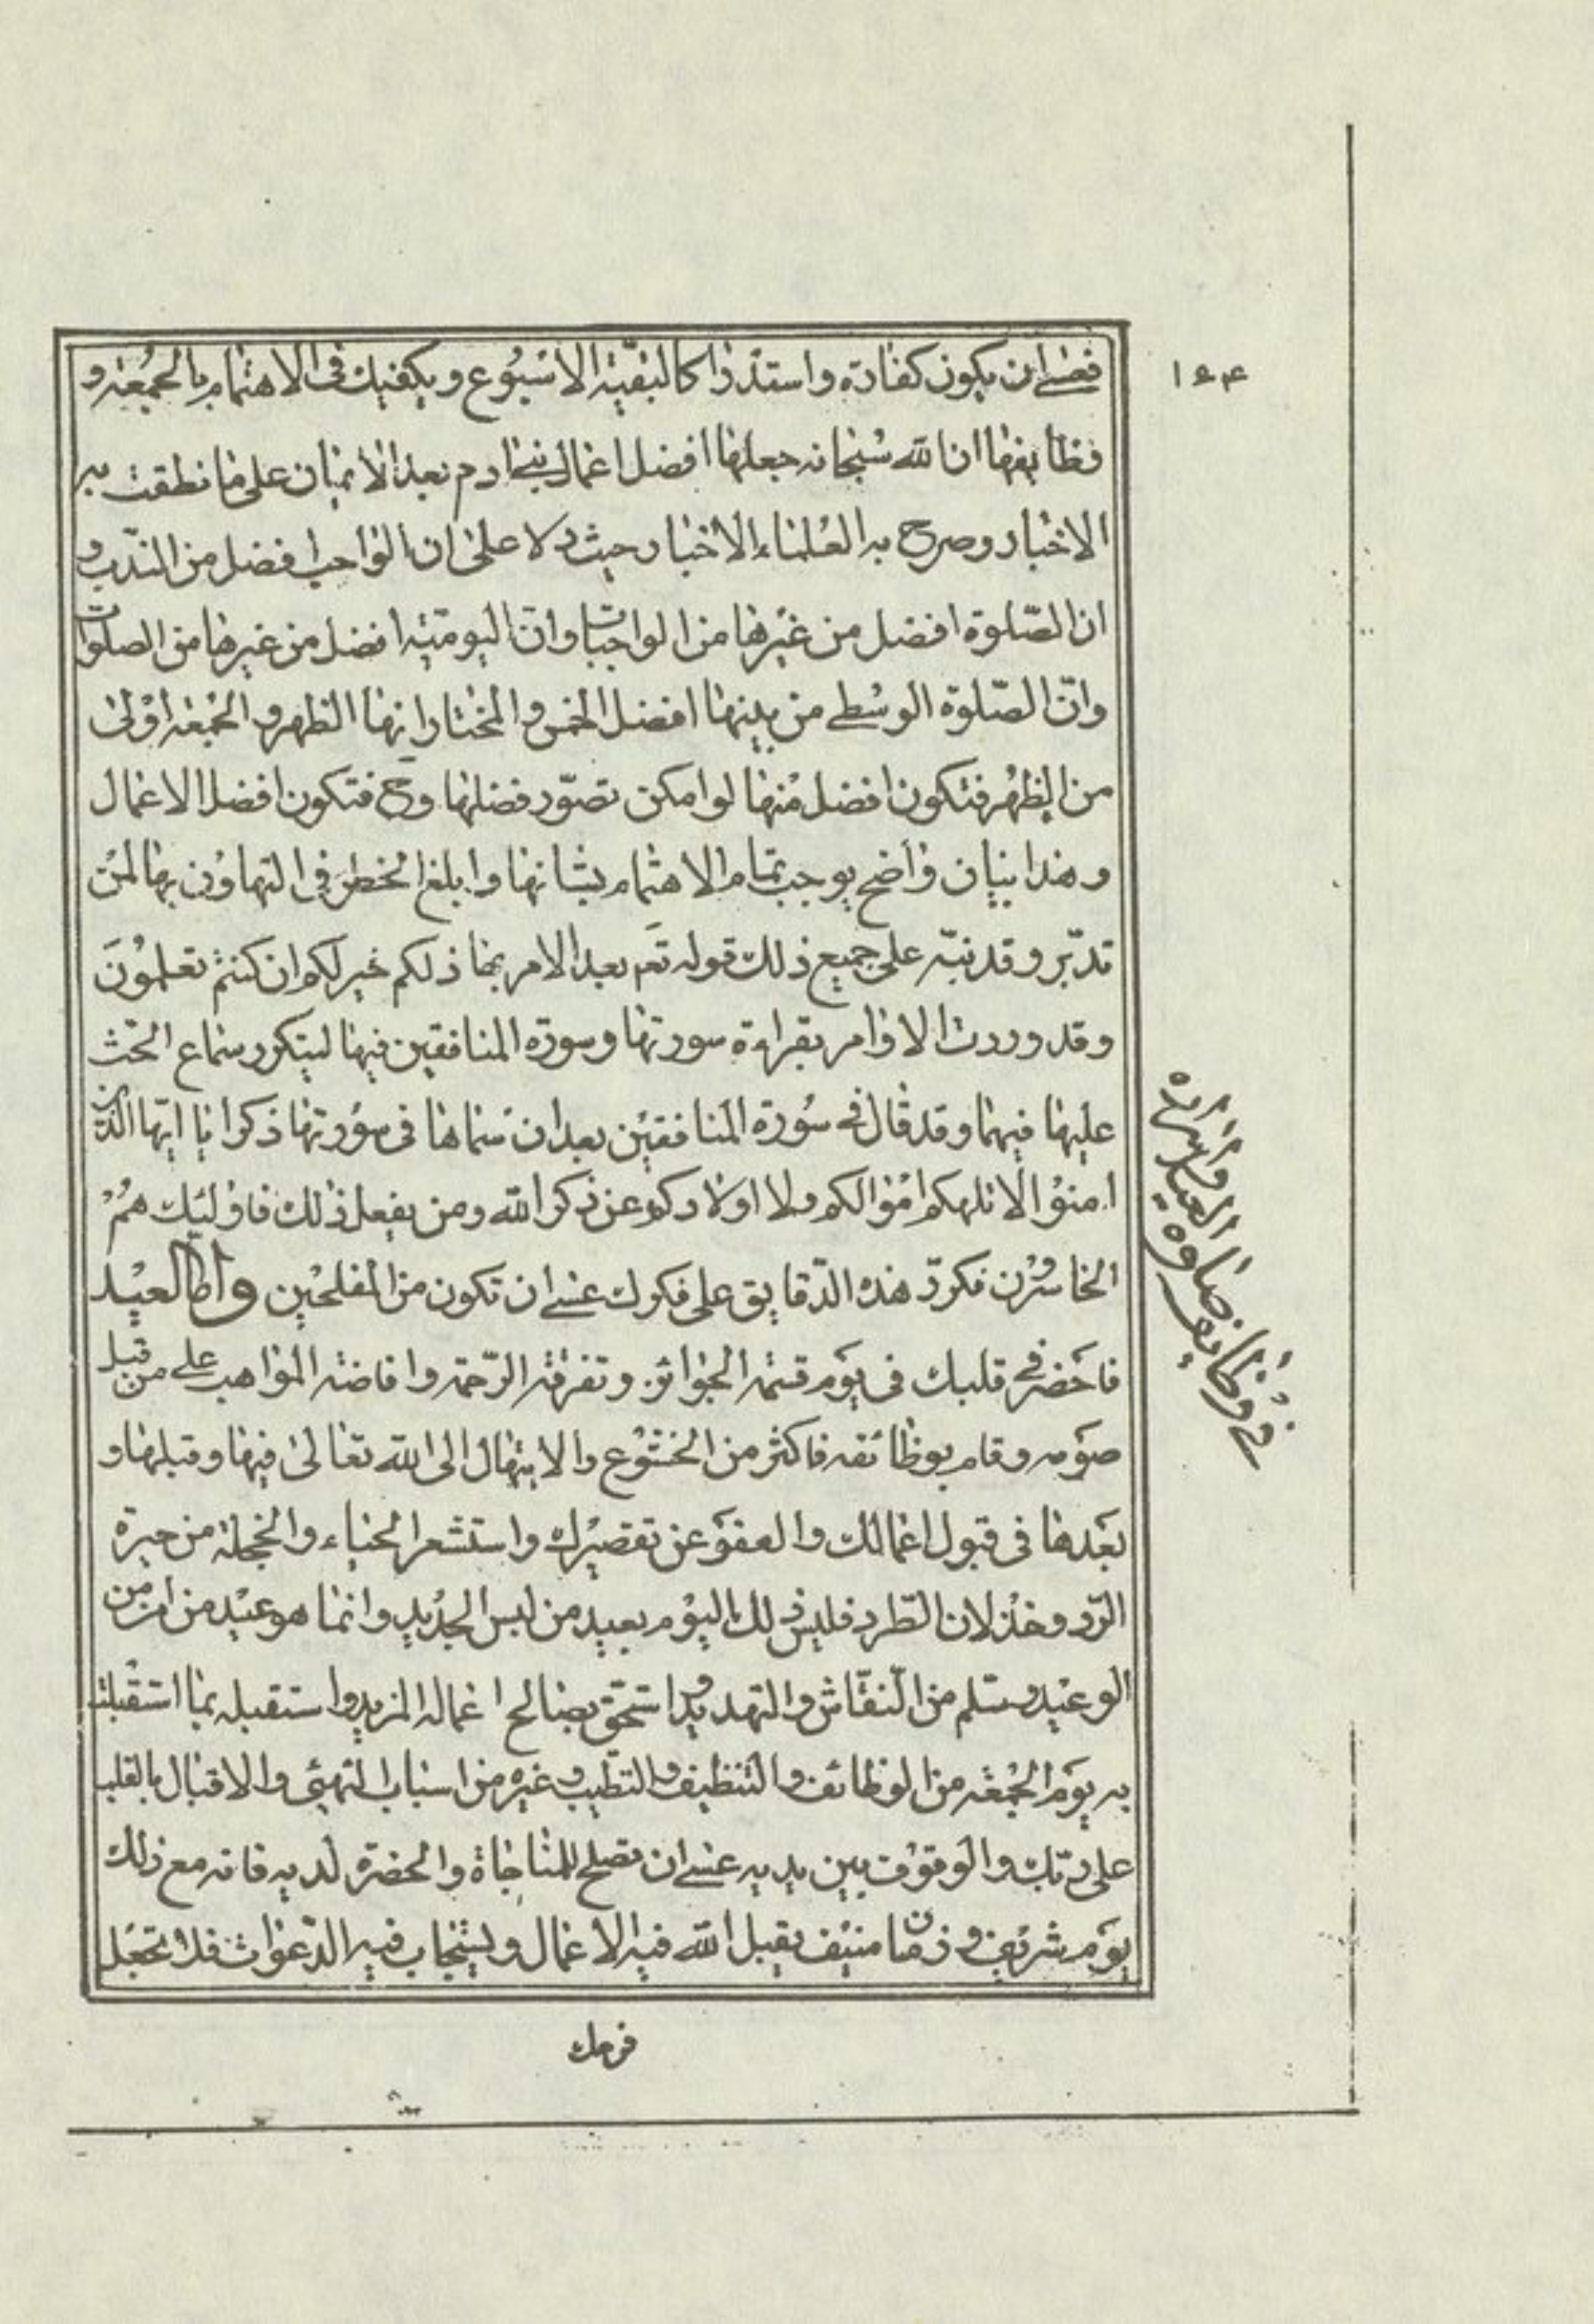 ١٦٤
فعسى ان يكون كفارة واستدراكا لبقية الاسبوع ويكفيك فى الاهتمام بالجمعة و
فظايفها ان الله سبحانه جعلها افضل اعمال بنى ادم بعد الايمان على ما نطقت به
الاخبار وصرح به العلماء الاخيار حيث دلا على ان الواجب افضل من الندب و
ان الصّلوة افضل من غيرها من الواجبات وان اليومية افضل من غيرها من الصلوات
وانّ الصّلوة الوسطى من بينها افضل الخمس والمختار انها الظهر والجمعة اولى
من الظهر فتكون افضل منها لو امكن تصوّر فضلها وح فتكون افضل الاعمال
وهذا بيان واضح يوجب تمام الاهتمام بشانها وابلغ الخطر فى التهاون بها لمن
تدبّر وقد نبّه على جميع ذلك قوله تعم بعد الامر بها ذلكم خير لكم ان كنتم تعلمون
وقد وردت الاوامر بقراءة سورتها وسورة المنافقين فيها ليتكرر سماع الحّث
عليها فيهما وقد قال فى سورة المنافقين بعد ان سماها فى سورتها ذكرا يا ايّها الذين
امنوا لا تلهكم اموالكم ولا اولادكم عن ذكر الله ومن يفعل ذلك فاولئك هم
الخاسرون فكرّر هذه الدّقايق على فكرك عسى ان تكون من المفلحين واما العيد
فاحضر فى قلبك فى يوم قسمة الجوائز وتفرقة الرّحمة وافاضة المواهب على من قبل
صومه وقام بوظائفه فاكثر من الخشوع والابتهال الى الله تعالى فيها وقبلها و
بعدها فى قبول اعمالك والعفو عن تقصيرك واستشعر الحياء والخجلة من حيرة
الرّد وخذلان الطّرد فليس ذلك اليوم بعيد من لبس الجديد وانما هو عيد من امن من
الوعيد وسلم من النقّاش والتهديد واستحّق بصالح اعماله المزيد واستقبله بما استقبلت
به يوم الجمعة من الوظائف والتنظيف والتطيب وغيره من اسباب التهيئ والاقبال بالقلب
على ربّك والوقوف بين يديه عسى ان تصلح للمناجاة والحضرة لديه فانه مع ذلك
يوم شريف وزمان منيف يقبل الله فيه الاعمال ويستجاب فيه الدّعوات فلا تجعل
فرحك
فى وظايف صلوة العيد واسراره